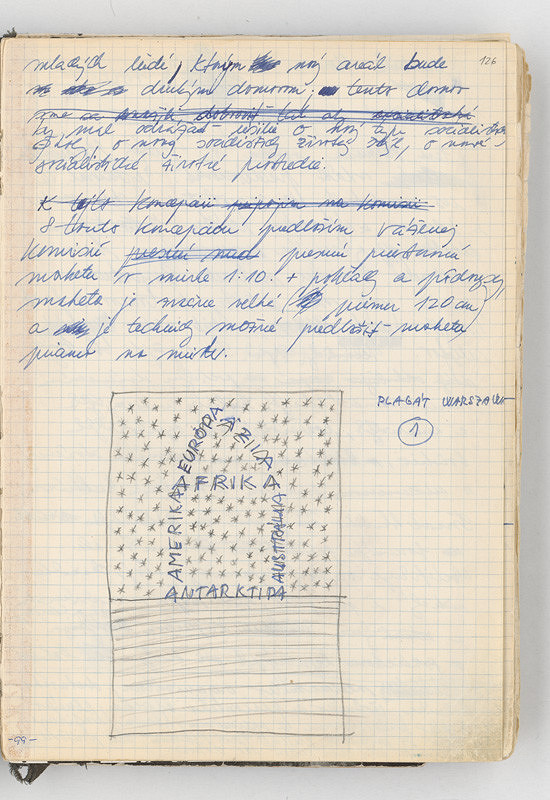 126
mladých ľudí, ktorým nový areál bude
druhým domovom; tento domov
by mal odrážať úsilie o nový typ socialistickej
školy, o nový socialistický životný štýl, o nové
socialistické životné prostredie.
K tejto koncepcii pripojím na komisii
S touto koncepciou predložím Váženej
komisii presnú priestorovú
maketu v mierke 1:10. + pohľady a pôdorysy,
maketa je značne veľká ( priemer 120 cm)
a je technicky možné predložiť maketu
priamo na
PLAGÁT WARSZAWA
1
EURÓPA
ÁZIIA
AFRIKA
AMERIKA
AUSTRÁLIA
ANTARKTIDA
-99-